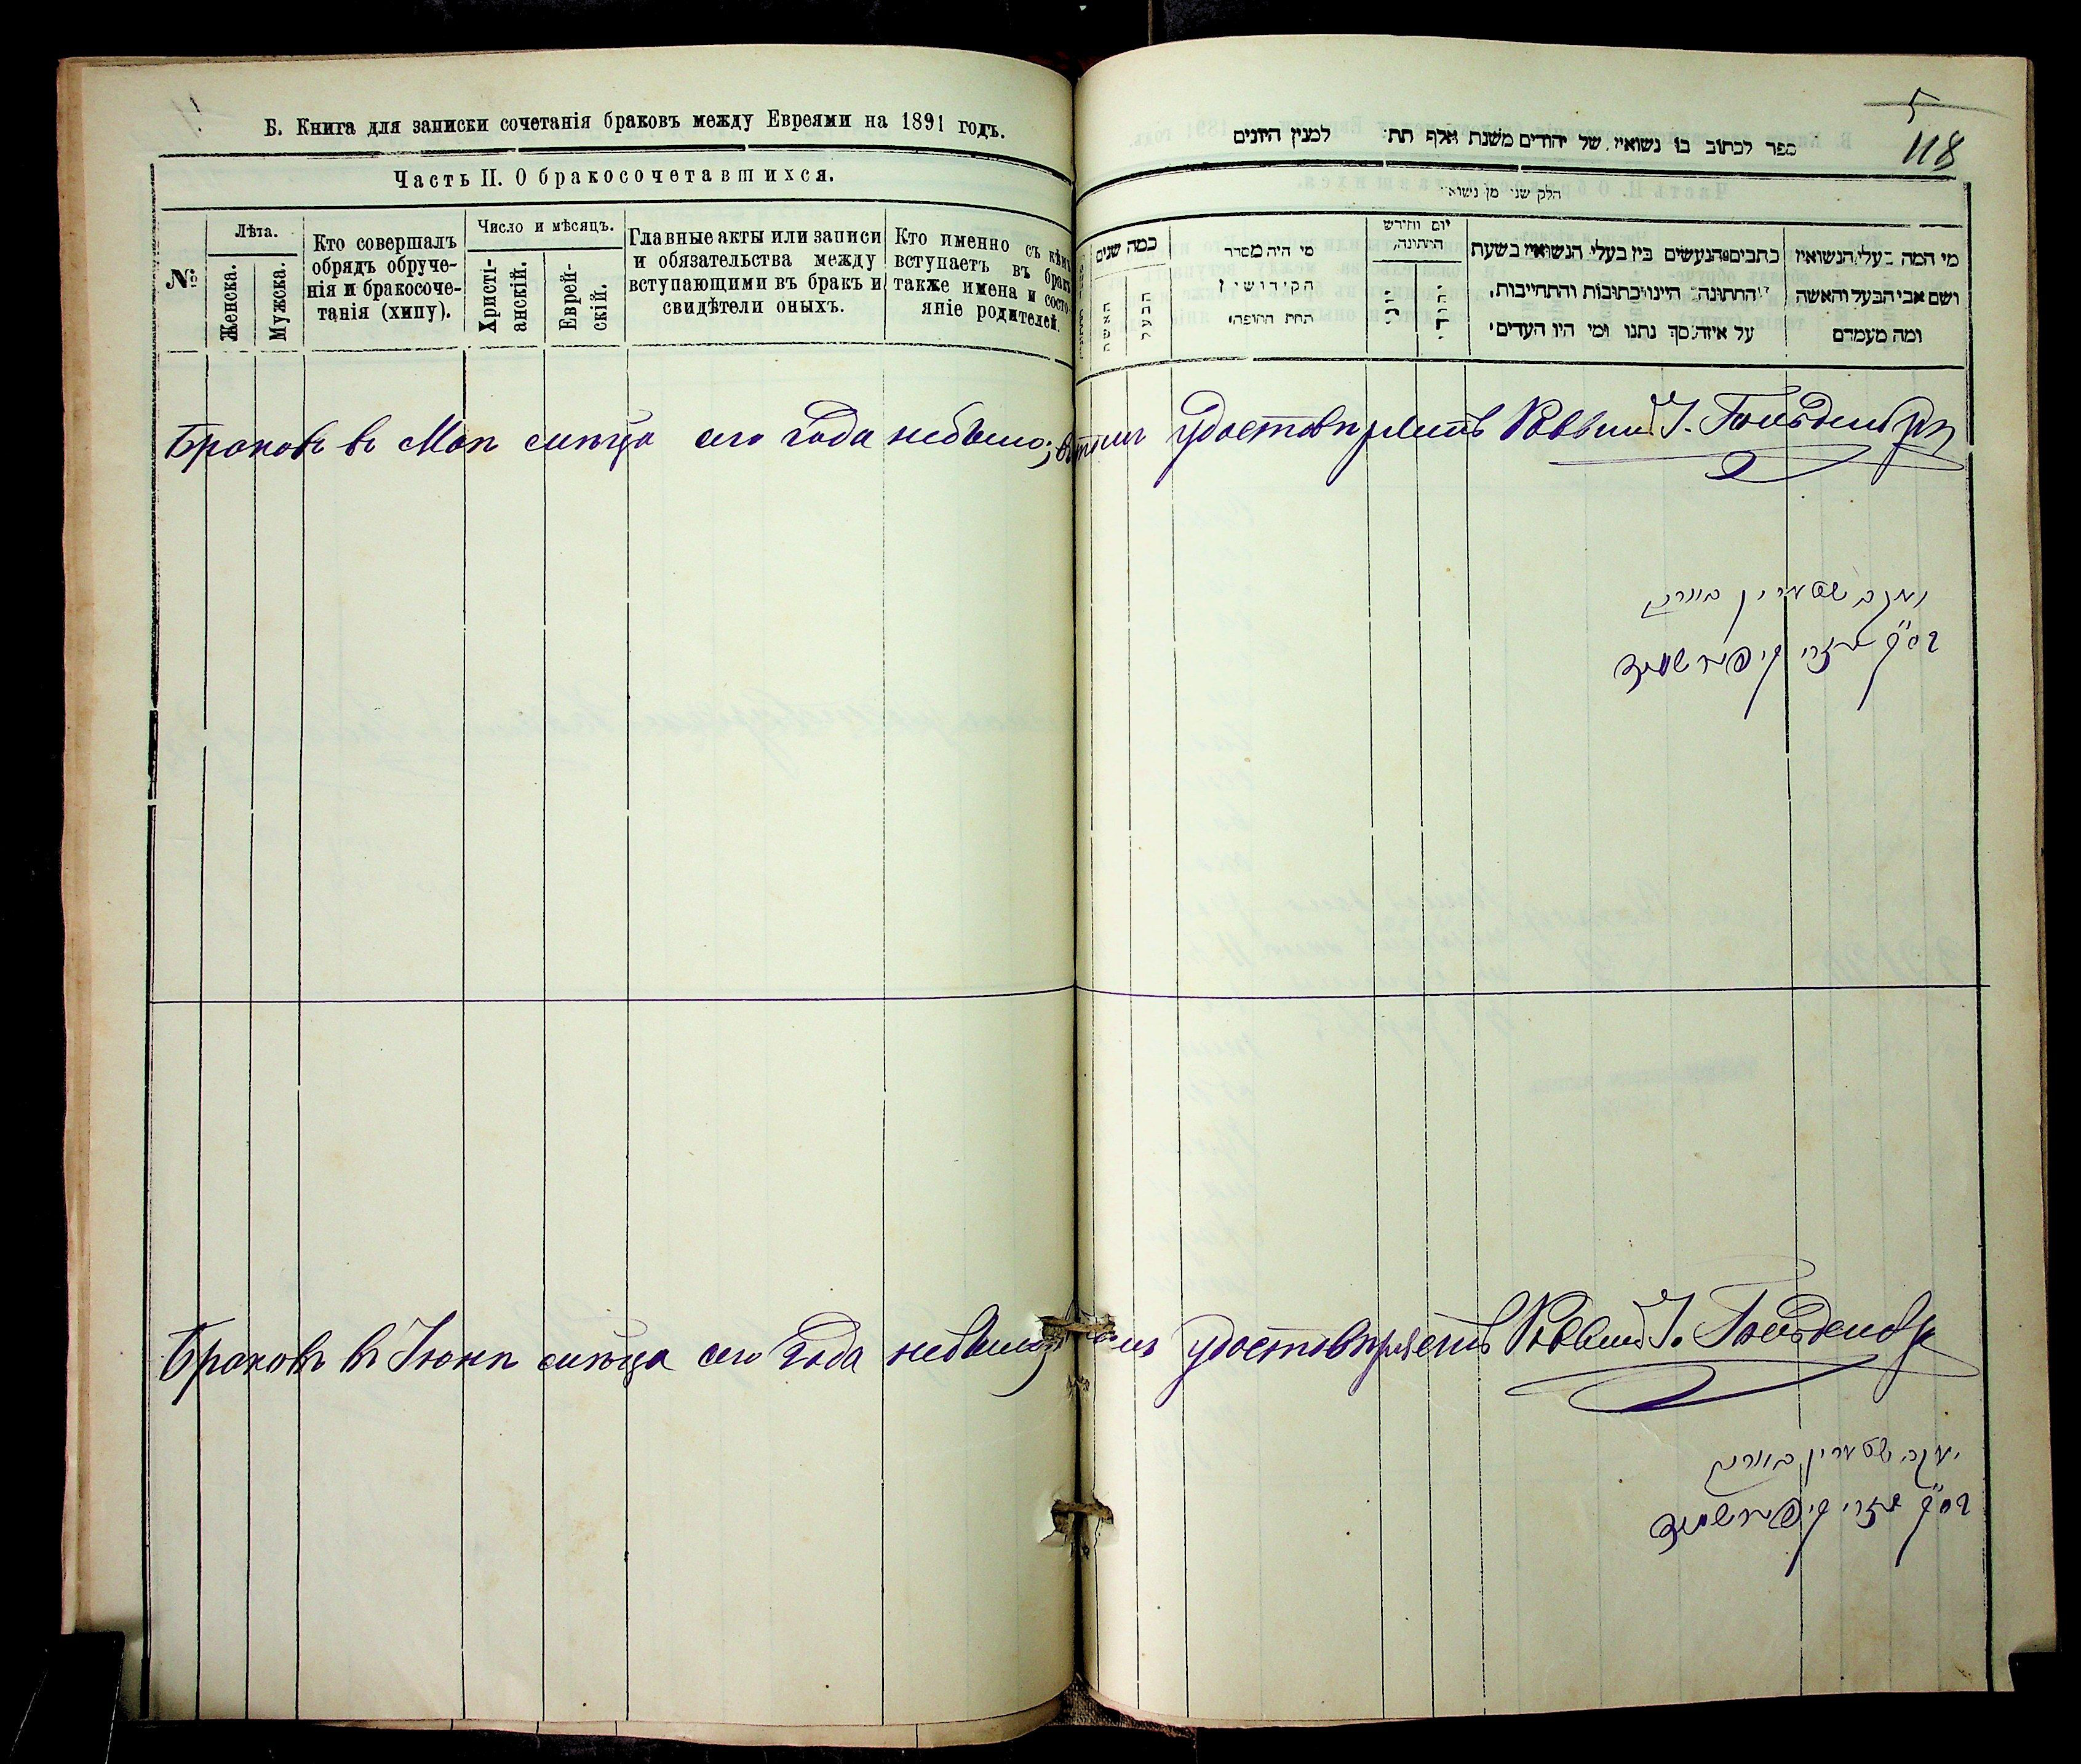 Б. Книга для записки сочетанія браковъ между Евреями на 1891 годъ.
Часть II. О бракосочетавшихся.
№
Лѣта.
Женска.
Мужска.
Кто совершалъ
обрядъ обруче-
нія и бракосоче-
танія (хипу).
Число и мѣсяцъ.
Христі-
анскій.
Еврей-
скій.
Главные акты или записи
и обязательства между
вступающими въ бракъ и
свидѣтели оныхъ.
Кто именно съ кѣмъ
вступаетъ въ бракъ
также имена и состо-
яніе родителей.
5
118
ספר לכתוב בו נשואין של יהודים משנת אלף תת למנין היונים
חלק שני מן נשואי
כמה שנים
האשה
הבעל
מי היה מסדר
הקידושין
תחת החופה
יום וחודש
החתונה
כתבים הנעשים בין בעלי הנשואין בשעת
החתונה היינו כתובות והתחייבות
על איזה סך נתנו ומי היו העדים
מי המה בעלי הנשואין
ושם אבי הבעל והאשה
ומה מעמדם
Браковъ въ Маѣ мѣсяца сего года небыло; въ чемъ удостовѣряетъ Раввинъ І. Гольденберг
Браковъ въ Іюнѣ мѣсяца сего года небыло; удостовѣряетъ Раввинъ І. Гольденберг